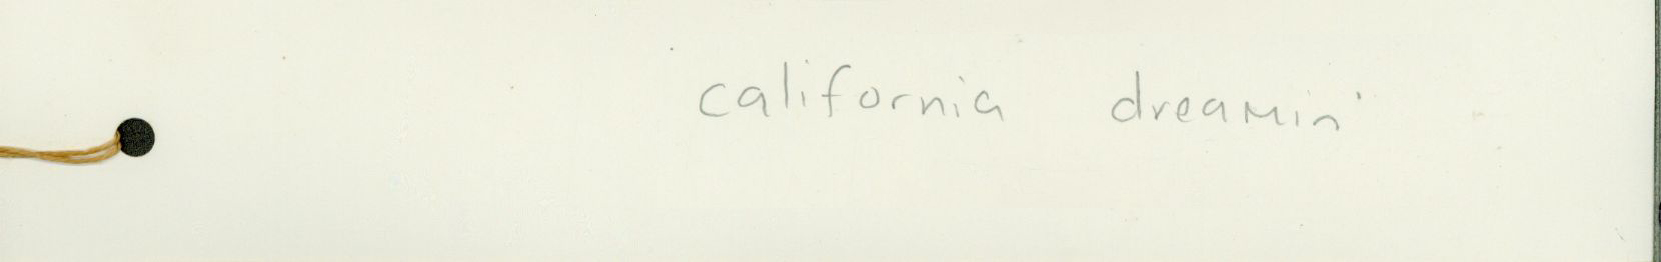 california dreamin'